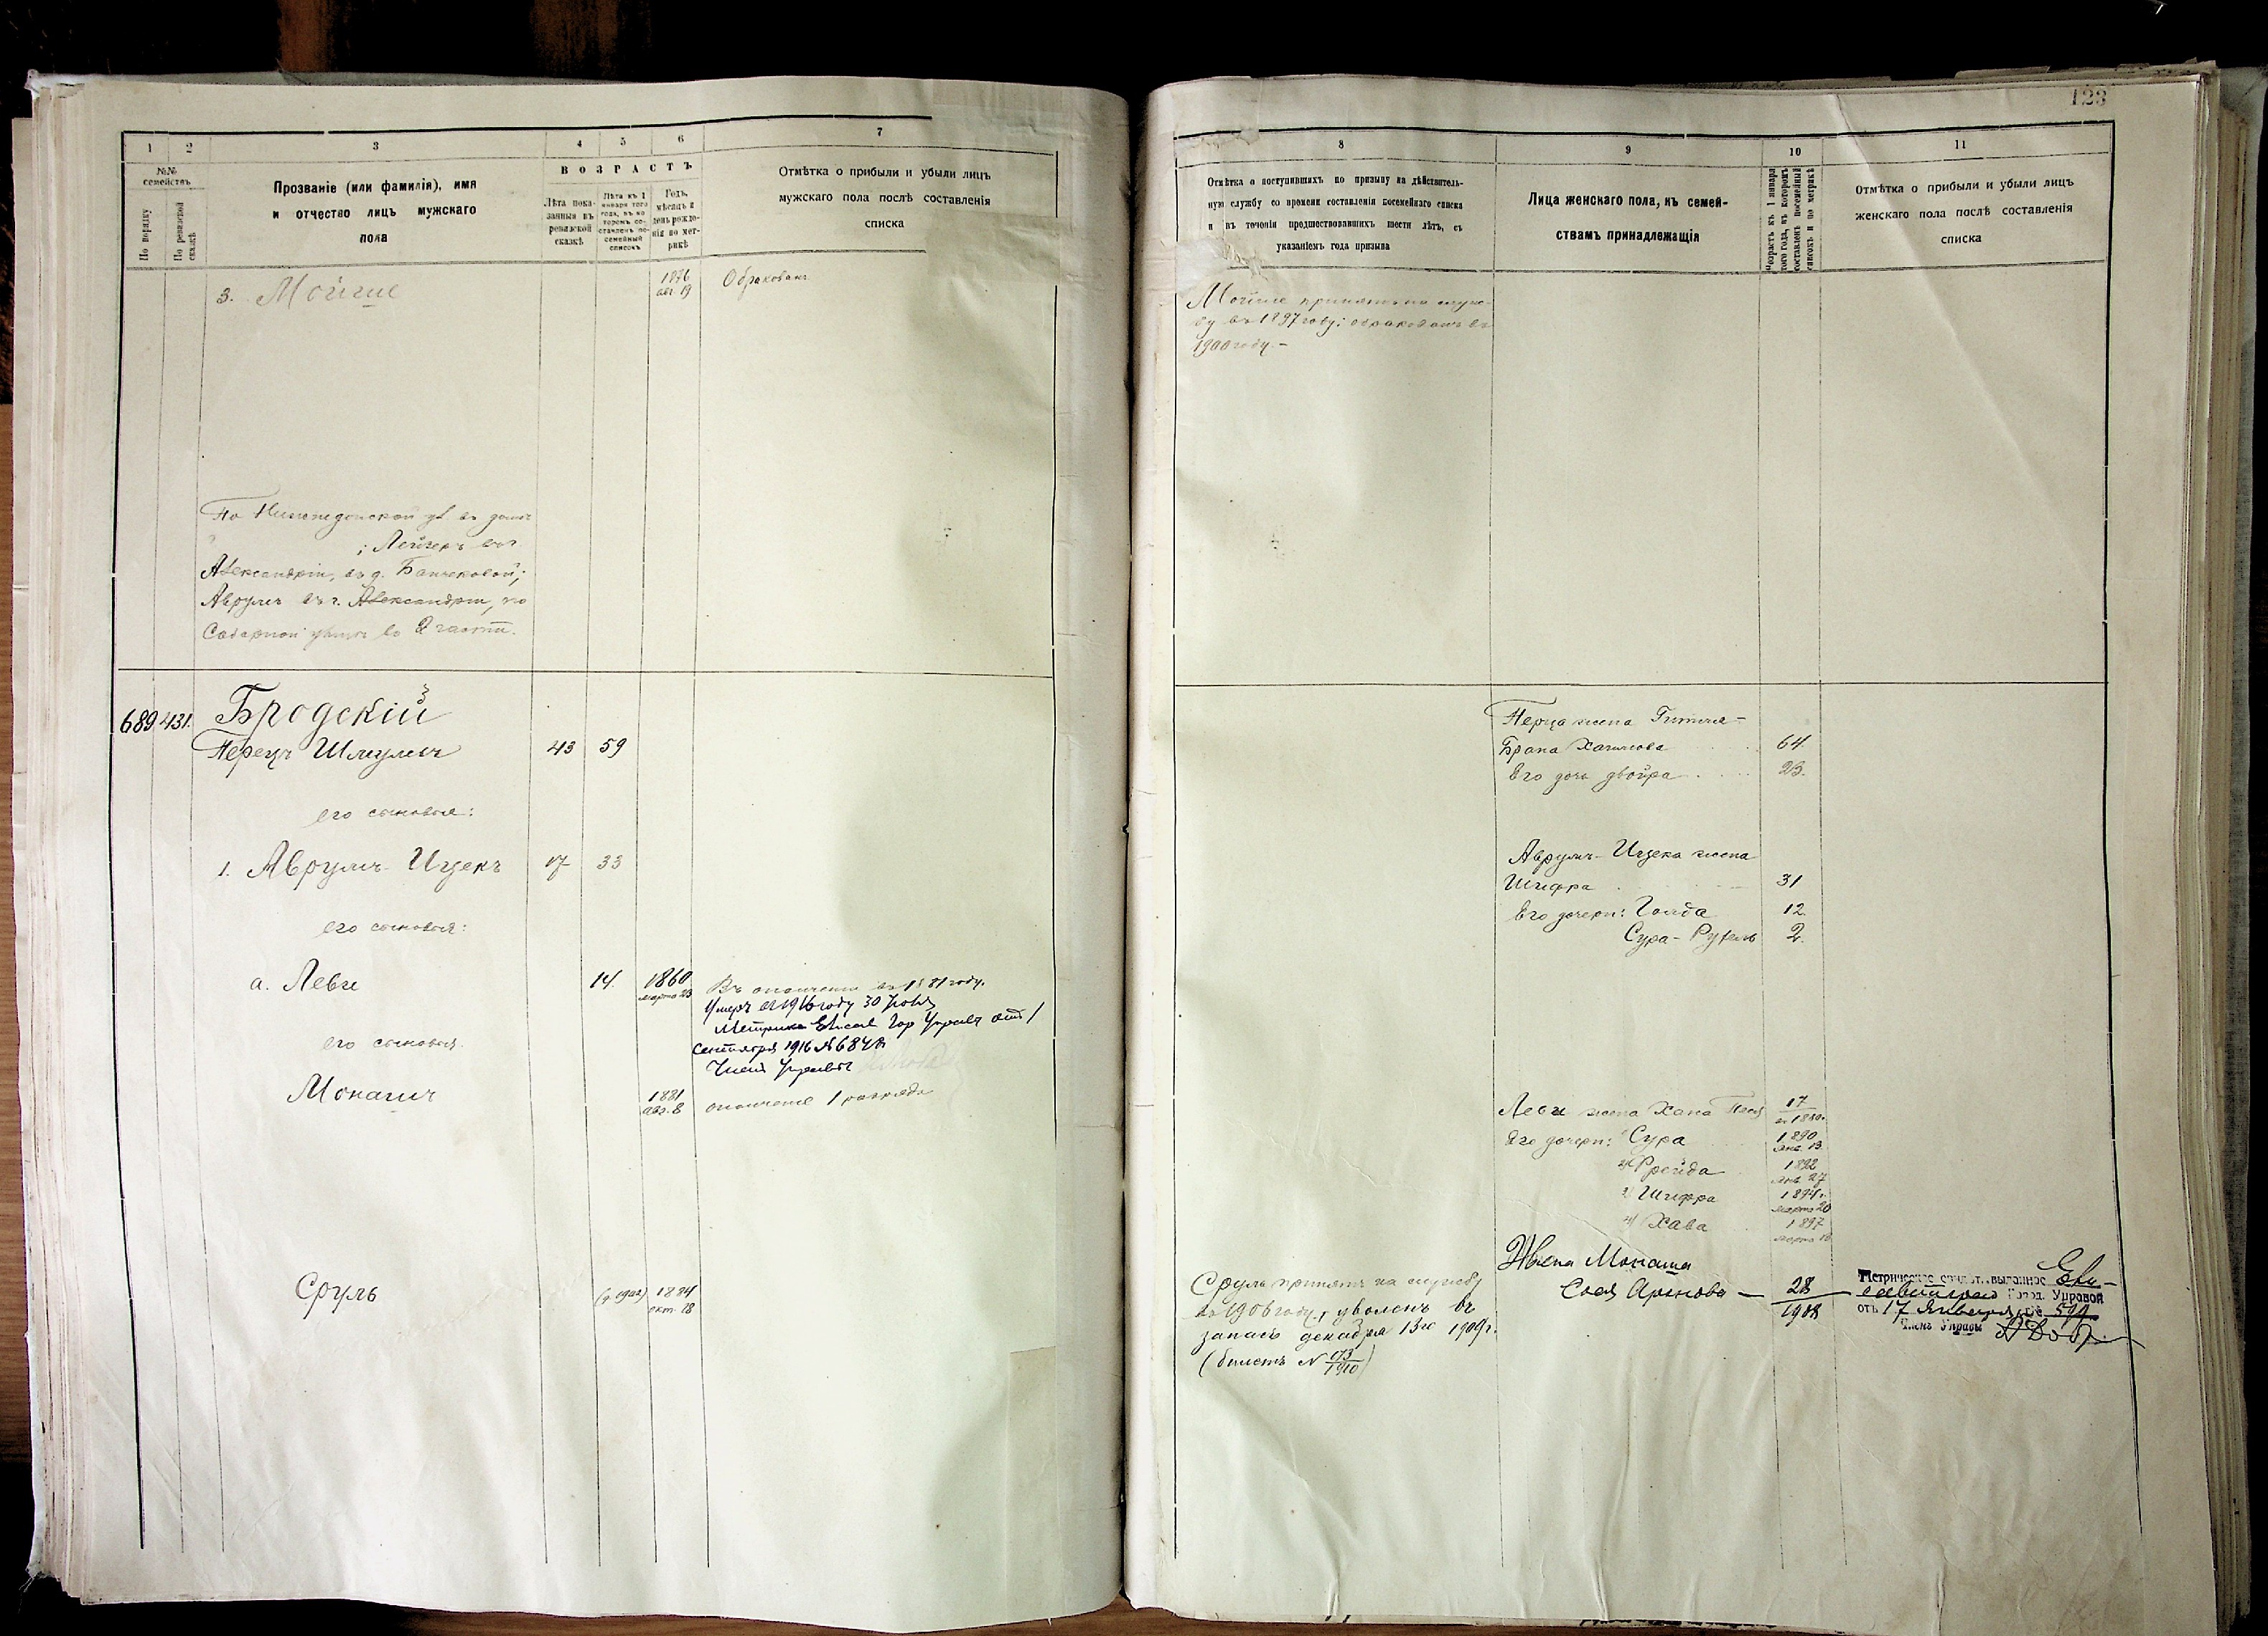 123
1
2
3
4
5
6
7
№№ семействъ
По порядку
По ревизской сказкѣ
Прозваніе (или фамилія), имя
и отчество лицъ мужскаго
пола
ВОЗРАСТЪ
Лѣта пока-
занныя въ
ревизской
сказкѣ
Лѣта къ 1
января того
года, въ ко-
торомъ со-
ставленъ по-
семейный
списокъ
Годъ,
мѣсяцъ и
день рожде-
нія по мет-
рикѣ
Отмѣтка о прибыли и убыли лицъ
мужскаго пола послѣ составленія
списка
3. Мойше
1876
авг. 19
Обракованъ
въ домѣ
; Лейзеръ въ г.
Александріи, въ д.
Аврумъ въ г. Александріи, по
Соборной улицѣ во 2 части.
689
431.
Бродскій
Перецъ Шмулевъ
43
59
его сыновья:
1. Аврумъ-Ицекъ
17
33
его сыновья:
а. Леви
14.
1860
марта 23
Въ ополченіи въ 1881 году.
Умеръ въ 1916 году 30 Іюля
Метрика Елисав Гор Управы отъ 1
Сентября 1916 №
Членъ Управы
его сыновья.
Монашъ
1881
авг. 8
ополченіе 1 разряда
Сруль
1884
окт. 18
8
9
10
11
Отмѣтка о поступившихъ по призыву на дѣйствитель-
ную службу со времени составленія посемейнаго списка
и въ теченіи предшествовавшихъ шести лѣтъ, съ
указаніемъ года призыва
Лица женскаго пола, къ семей-
ствамъ принадлежащія
Возрастъ къ 1 января
того года, въ которомъ
составленъ посемейный
списокъ и по метрикѣ
Отмѣтка о прибыли и убыли лицъ
женскаго пола послѣ составленія
списка
Мойше принятъ на служ-
бу въ 1897 году; обракованъ въ
1900 году.-
Перца жена Гитля-
Брана Хаимова
64.
Его дочь Двойра
23.
Аврумъ-Ицека жена
Шифра
31
Его дочери: Голда
12.
Сура-Рухель
2.
Леви жена Хана
17
въ 1880г.
Его дочери: Сура
1890
янв. 13.
2/ Фрейда
1892
янв. 27
3/ Шифра
1894г.
марта 20
4/ Хава
1897
марта 16
Жена Монаша
Сося Аронова —
28
1908
Метрическое свидѣт., выданное Ели-
саветград Город. Управой
отъ 17 Января за № 594
Членъ Управы
Сруль принятъ на службу
въ 1906 году; уволенъ въ
запасъ декабря 13го 1909г.
(билетъ N 173/1910)